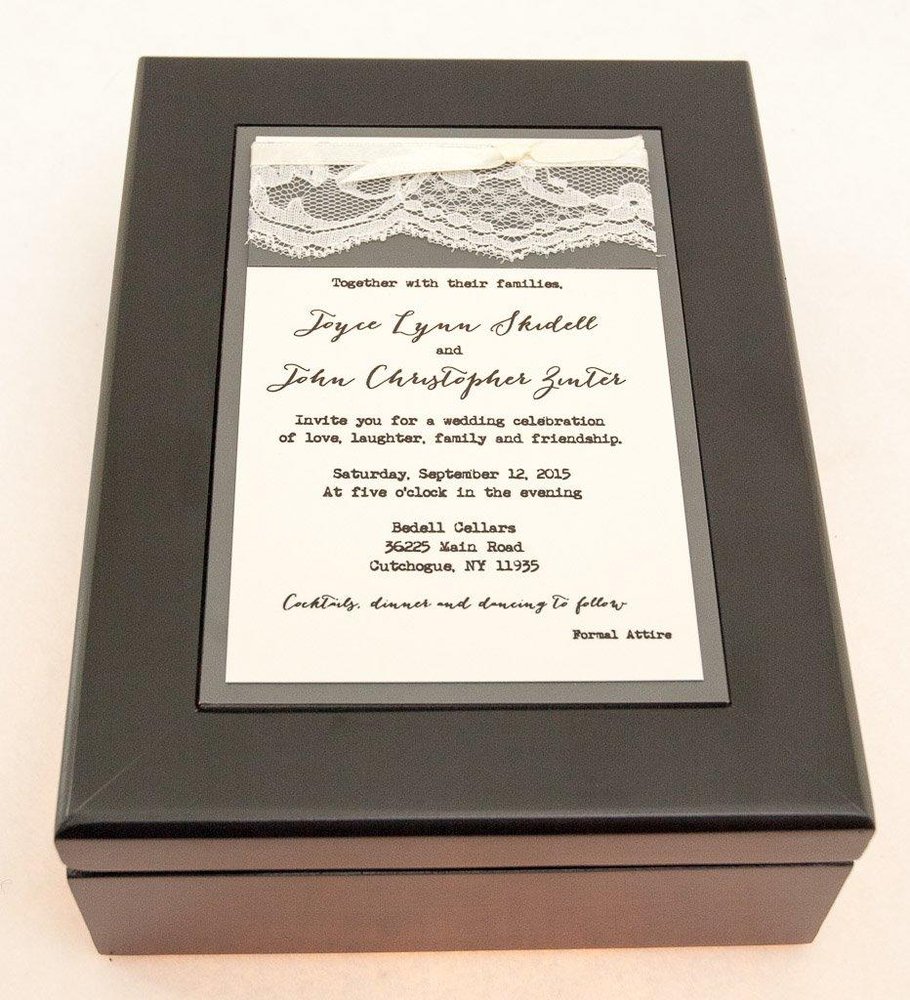 Together with their families,
Joyce Lynn Skidell
and
John Christopher Zinter
Invite you for a wedding celebration
of love, laughter, family and friendship.
Saturday, September 12, 2015
At five o'clock in the evening
Bedell Cellars
36225 Main Road
Cutchogue, NY 11935
Cocktails, dinner and dancing to follow
Formal Attire